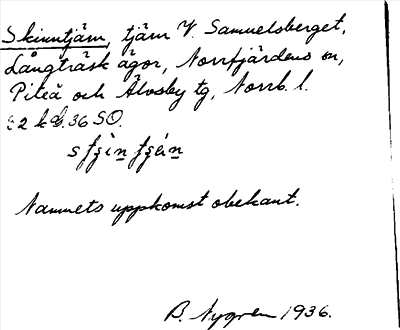 Skinntjärn, tjärn V. Samuelsberget,
Långträsk ägor, Norrfjärdens sn,
Piteå och Älvsby tg, Norrb. l.
36 SO.
Namnets uppkomst obekant.
B. Nygren 1936.